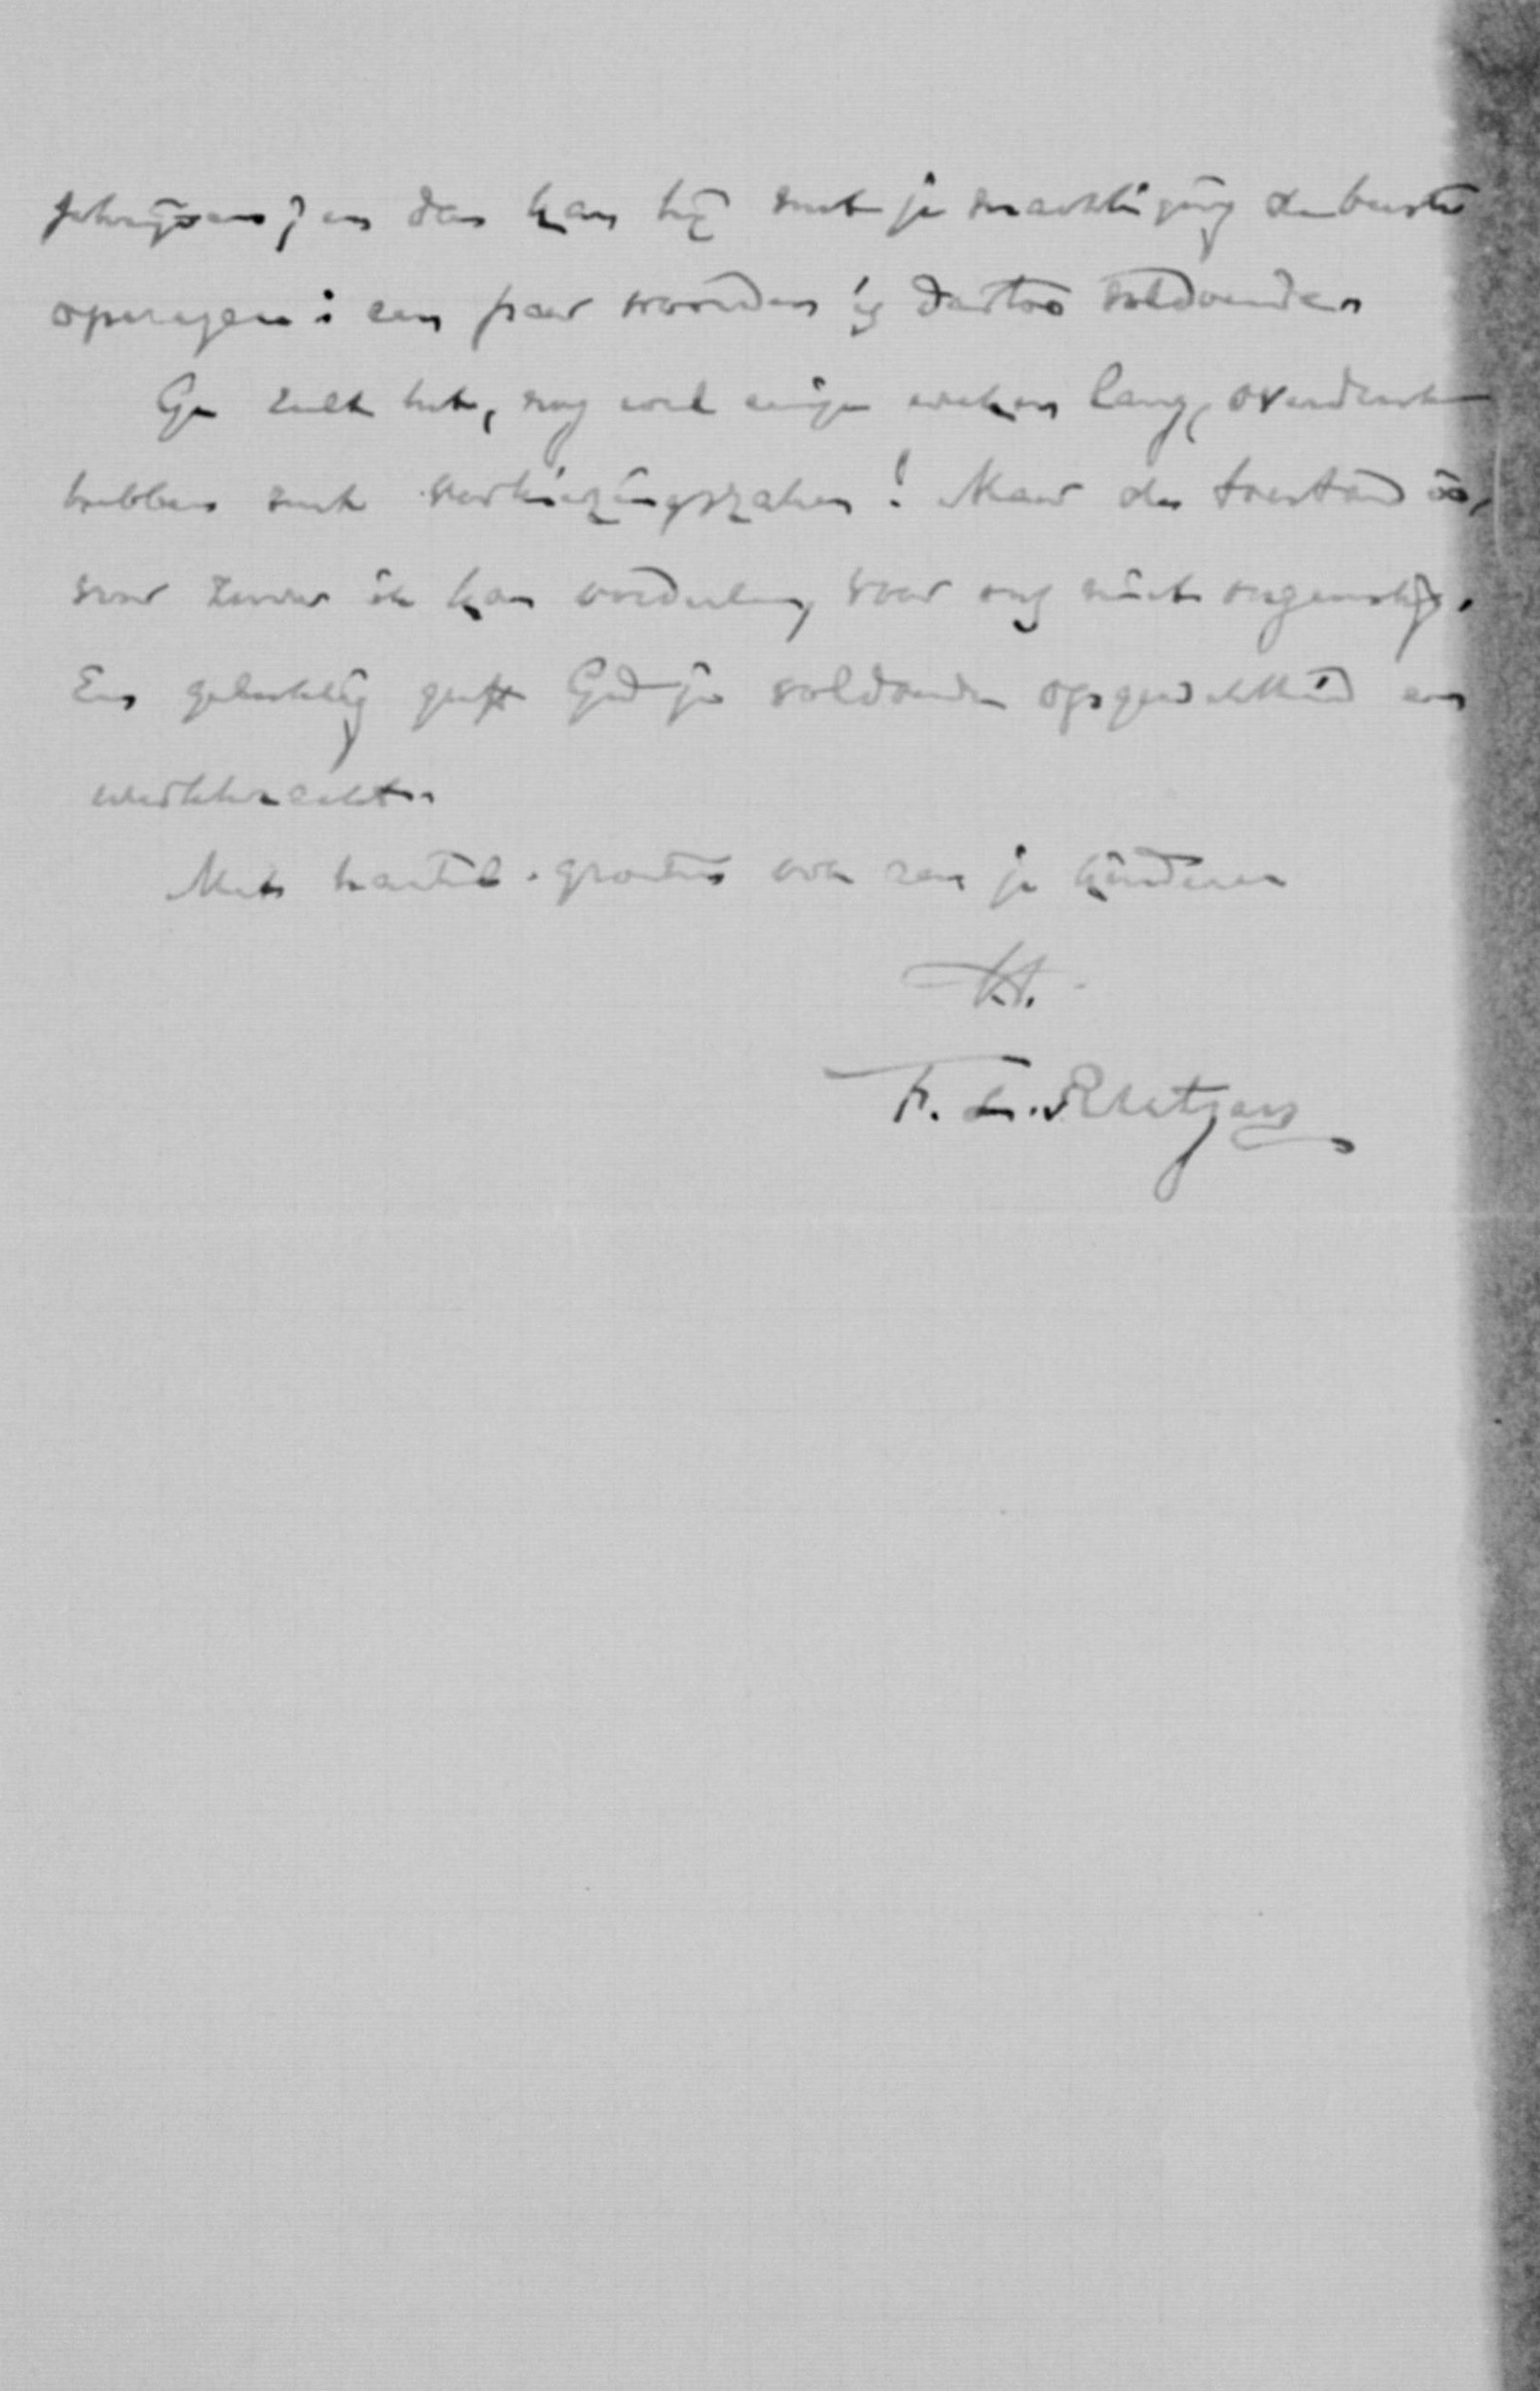 schrijven; en dan kan hij met je machtiging de beurs
opvragen: een paar woorden is daartoe voldoende.
Ge zult het, nog wel eenige weken lang, overdruk
hebben met verkiezingszaken! Maar de toestand is,
voor zoover ik kan oordeelen, voor ons niet ongunstig.
En gelukkig geeft God je voldoende opgewektheid en
werkkracht.
Met hartel. groeten ook aan je kinderen
tt.
F. L. Rutgers